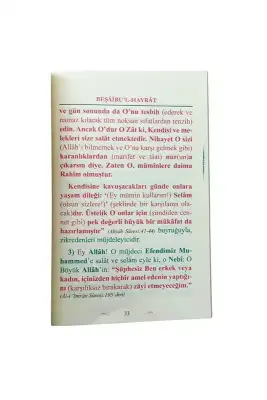 BEŞÂİRU'L-HAYRÂT
ve gün sonunda da O'nu tesbih (ederek ve
namaz kılarak tüm noksan sıfatlardan tenzih)
edin. Ancak O'dur O Zât ki, Kendisi ve me-
lekleri size salât etmektedir. Nihayet O sizi
(Allâh'ı bilmemek ve O'na karşı gelmek gibi)
karanlıklardan (marifet ve tâat) nuruna
çıkarsın diye. Zaten O, müminlere daima
Rahîm olmuştur.
Kendisine kavuşacakları günde onlara
yaşam dileği: "(Ey mümin kullarım!) Selâm
(olsun sizlere!)" (şeklinde bir karşılama) ola-
caktır. Üstelik O onlar için (şimdiden cen-
net gibi) pek değerli büyük bir mükâfat da
hazırlamıştır" (Ahzâb Sûresi:41-44) buyruğuyla,
zikredenleri müjdeleyicidir.
3) Ey Allâh! O müjdeci Efendimiz Mu-
hammed'e salât ve selâm eyle ki, o Nebî; O
Büyük Allâh'ın: "Şüphesiz Ben erkek veya
kadın, içinizden hiçbir amel edenin yaptığı-
nı (karşılıksız bırakarak) zâyi etmeyeceğim."
(Âl-i İmrân Sûresi:195'den)
33